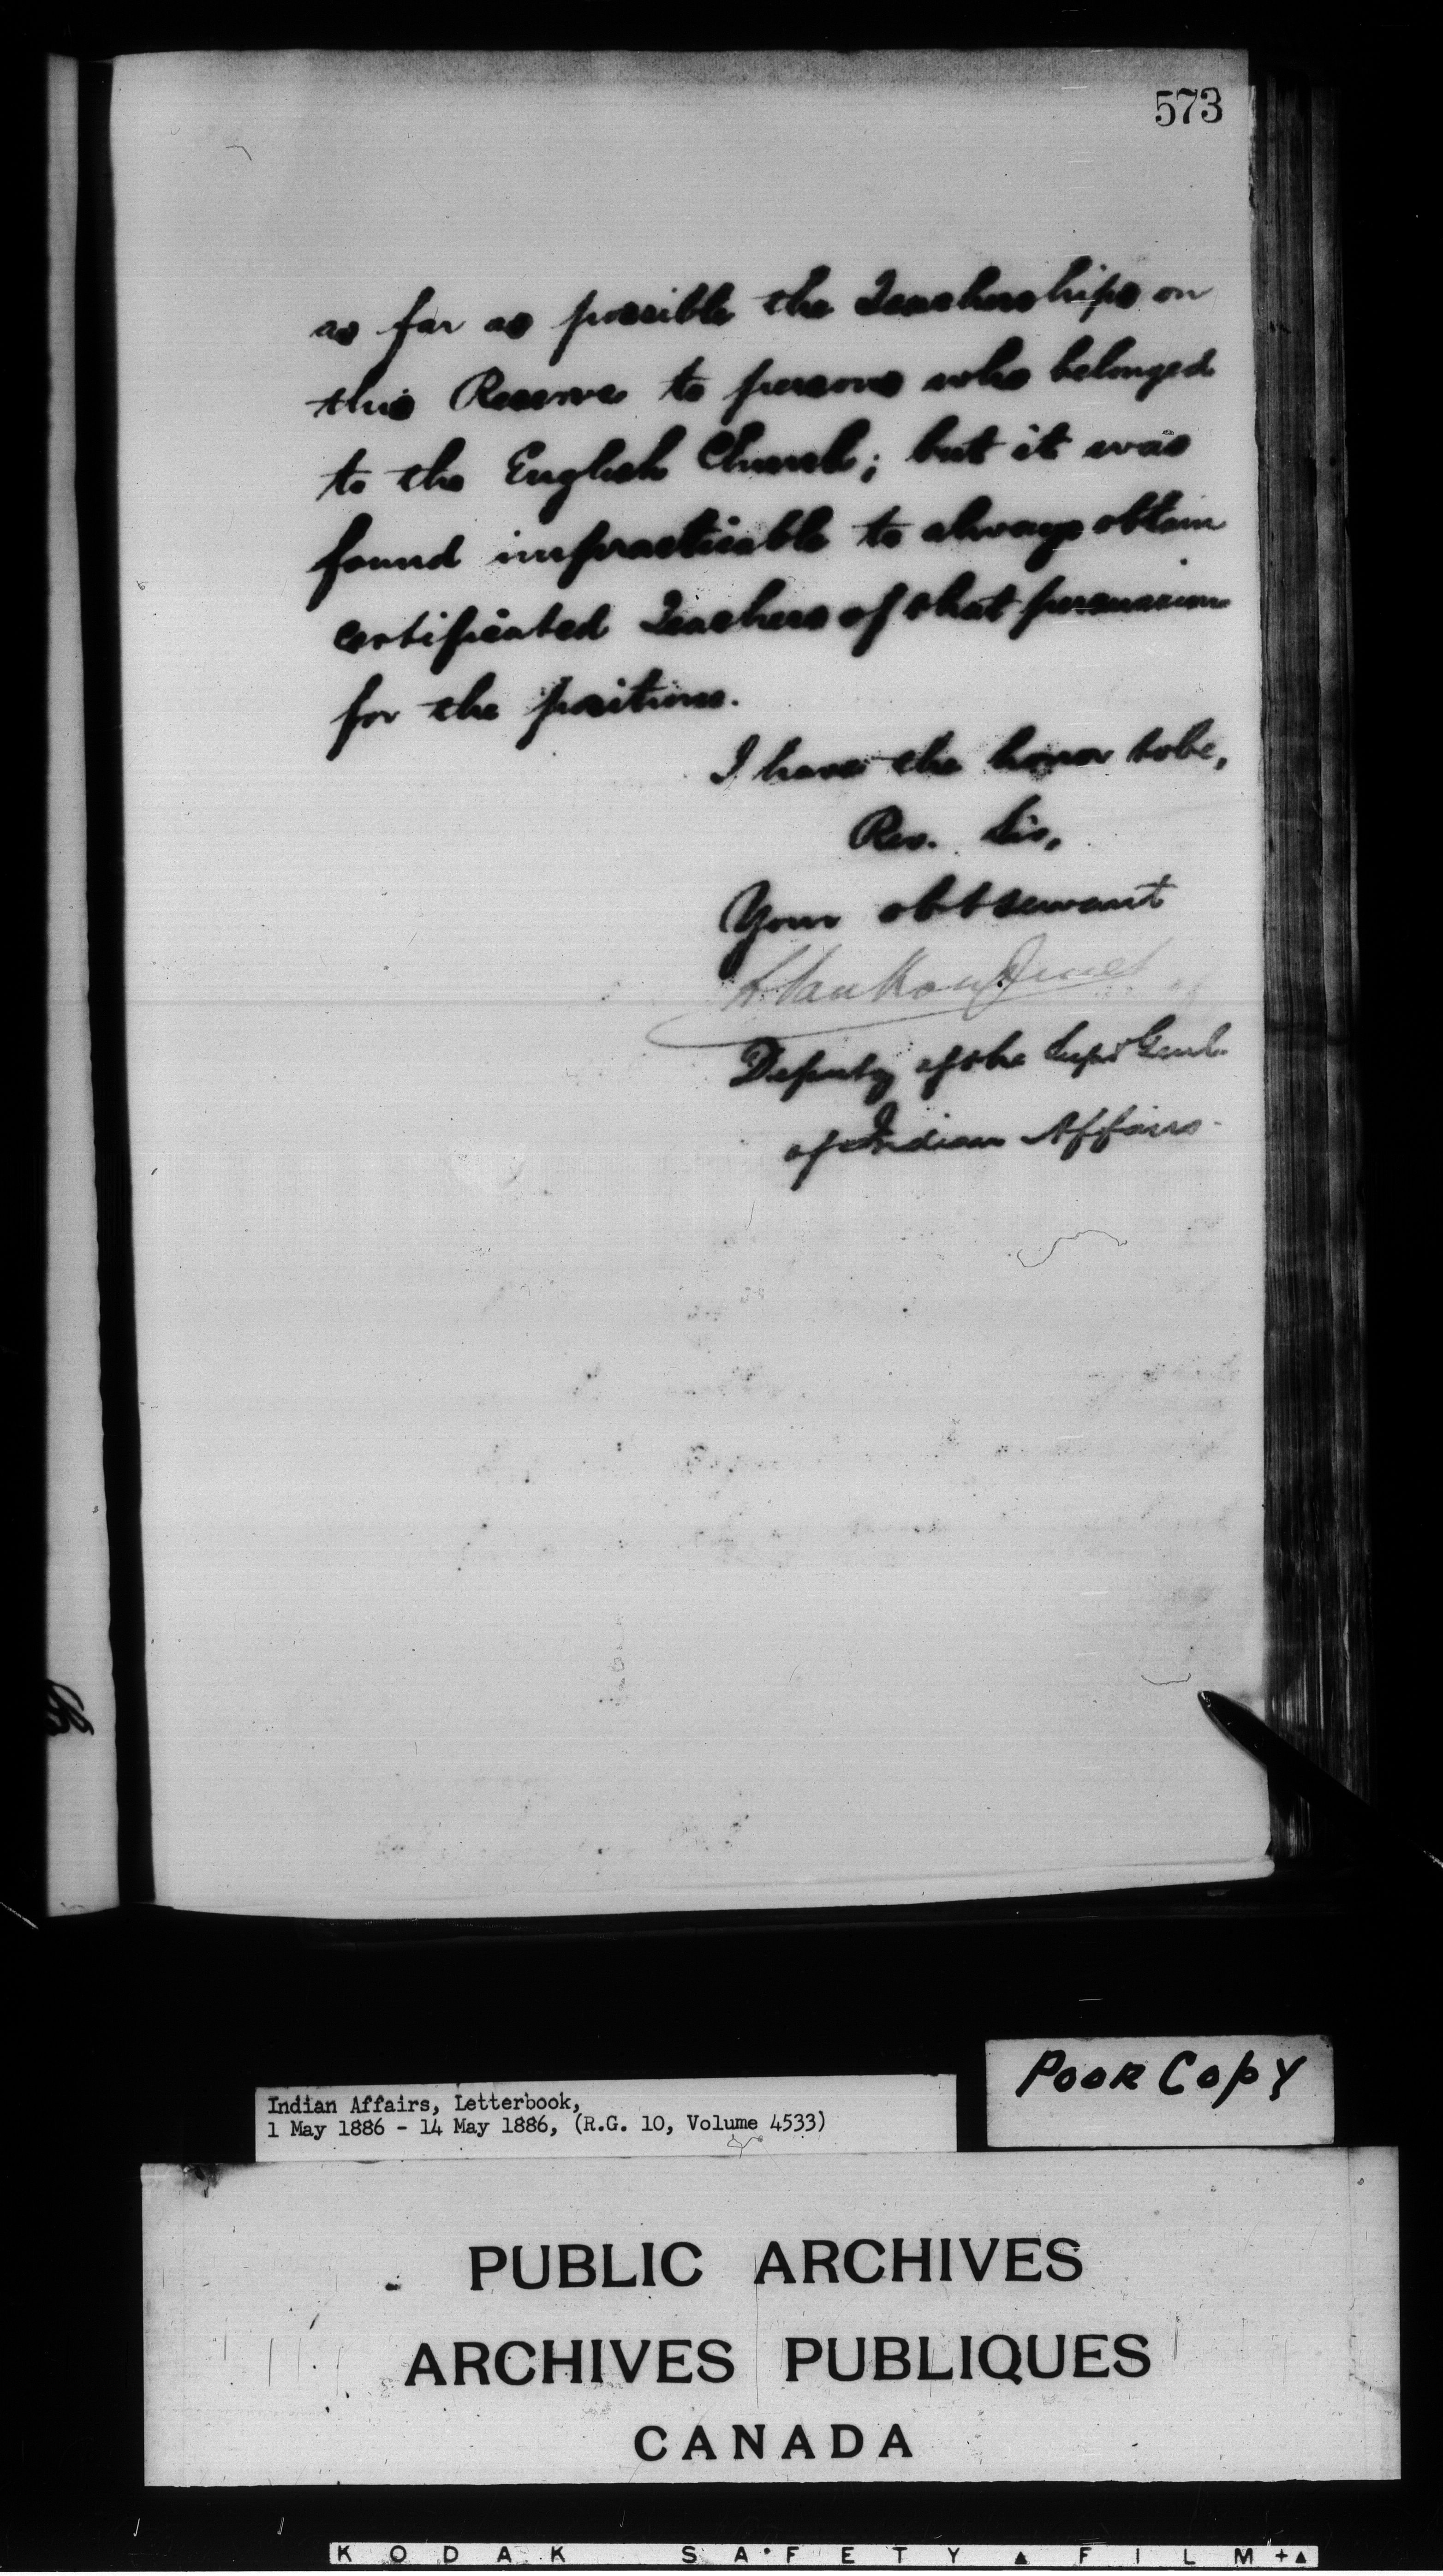 573
as far as possible the Teacherships on
this Reserve to persons who belonged
to the English Church; but it was
found impracticable to always obtain
certificated Teachers of that persuasion
for the positions.
I have the honor to be,
Rev. Sir,
Your obt servant
L. VanKoughnet
Deputy of the Supt Genl.
of Indian Affairs.
POOR COPY
Indian Affairs, Letterbook,
1 May 1886 - 14 May 1886, (R.G. 10, Volume 4533)
PUBLIC ARCHIVES
ARCHIVES PUBLIQUES
CANADA
KODAK SAFETY FILM